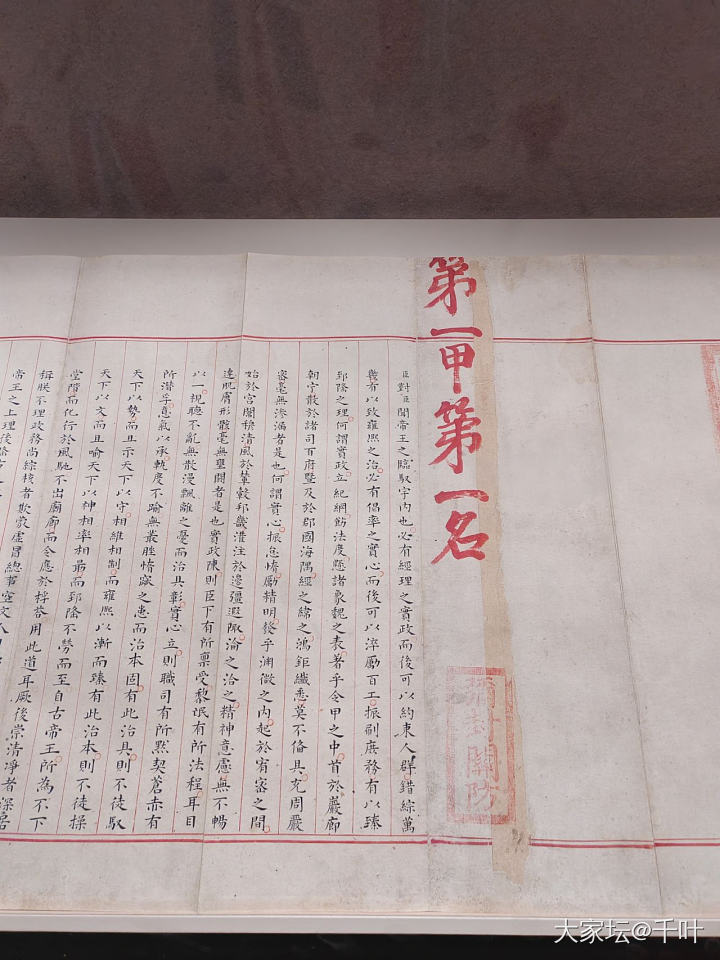 第一甲第一名
彌封關防
臣對臣聞帝王之臨馭宇內也必有經理之實政而後可以約束人群錯綜萬
幾有以致雍熙之治必有倡率之實心而後可以淬勵百工振刷庶務有以臻
郅隆之理何謂實政立紀綱飭法度懸諸象魏之表著乎令甲之中首於巖廊
朝宁散於諸司百府暨及於郡國海隅經之緯之鴻鉅纖悉莫不備具充周嚴
密毫無滲漏者是也何謂實心振怠惰勵精明發乎淵微之內起於宥密之間
始於宮闈穆清風於輦轂邦畿灌注於邊疆遐陬淪之洽之精神意慮無不暢
達肌膚形骸毫無壅閼者是也實政陳則臣下有所稟受黎氓有所法程耳目
以一視聽不亂無散漫飄離之憂而治具彰實心立則職司有所默契蒼赤有
所潛孚意氣以承軌度不踰無叢脞惰窳之患而治本固有此治具則不徒馭
天下以勢而且示天下以守相維相制而雍熙以漸而臻有此治本則不徒操
天下以文而且喻天下以神相率相勗而郅隆不勞而至自古帝王所為不下
堂階而化行於風馳不出廟廊而令應於桴荅用此道耳厥後崇清凈者深居
不理政務尚綜核者欺蒙虛冒總事空文
帝王之上理後
大家坛@千叶